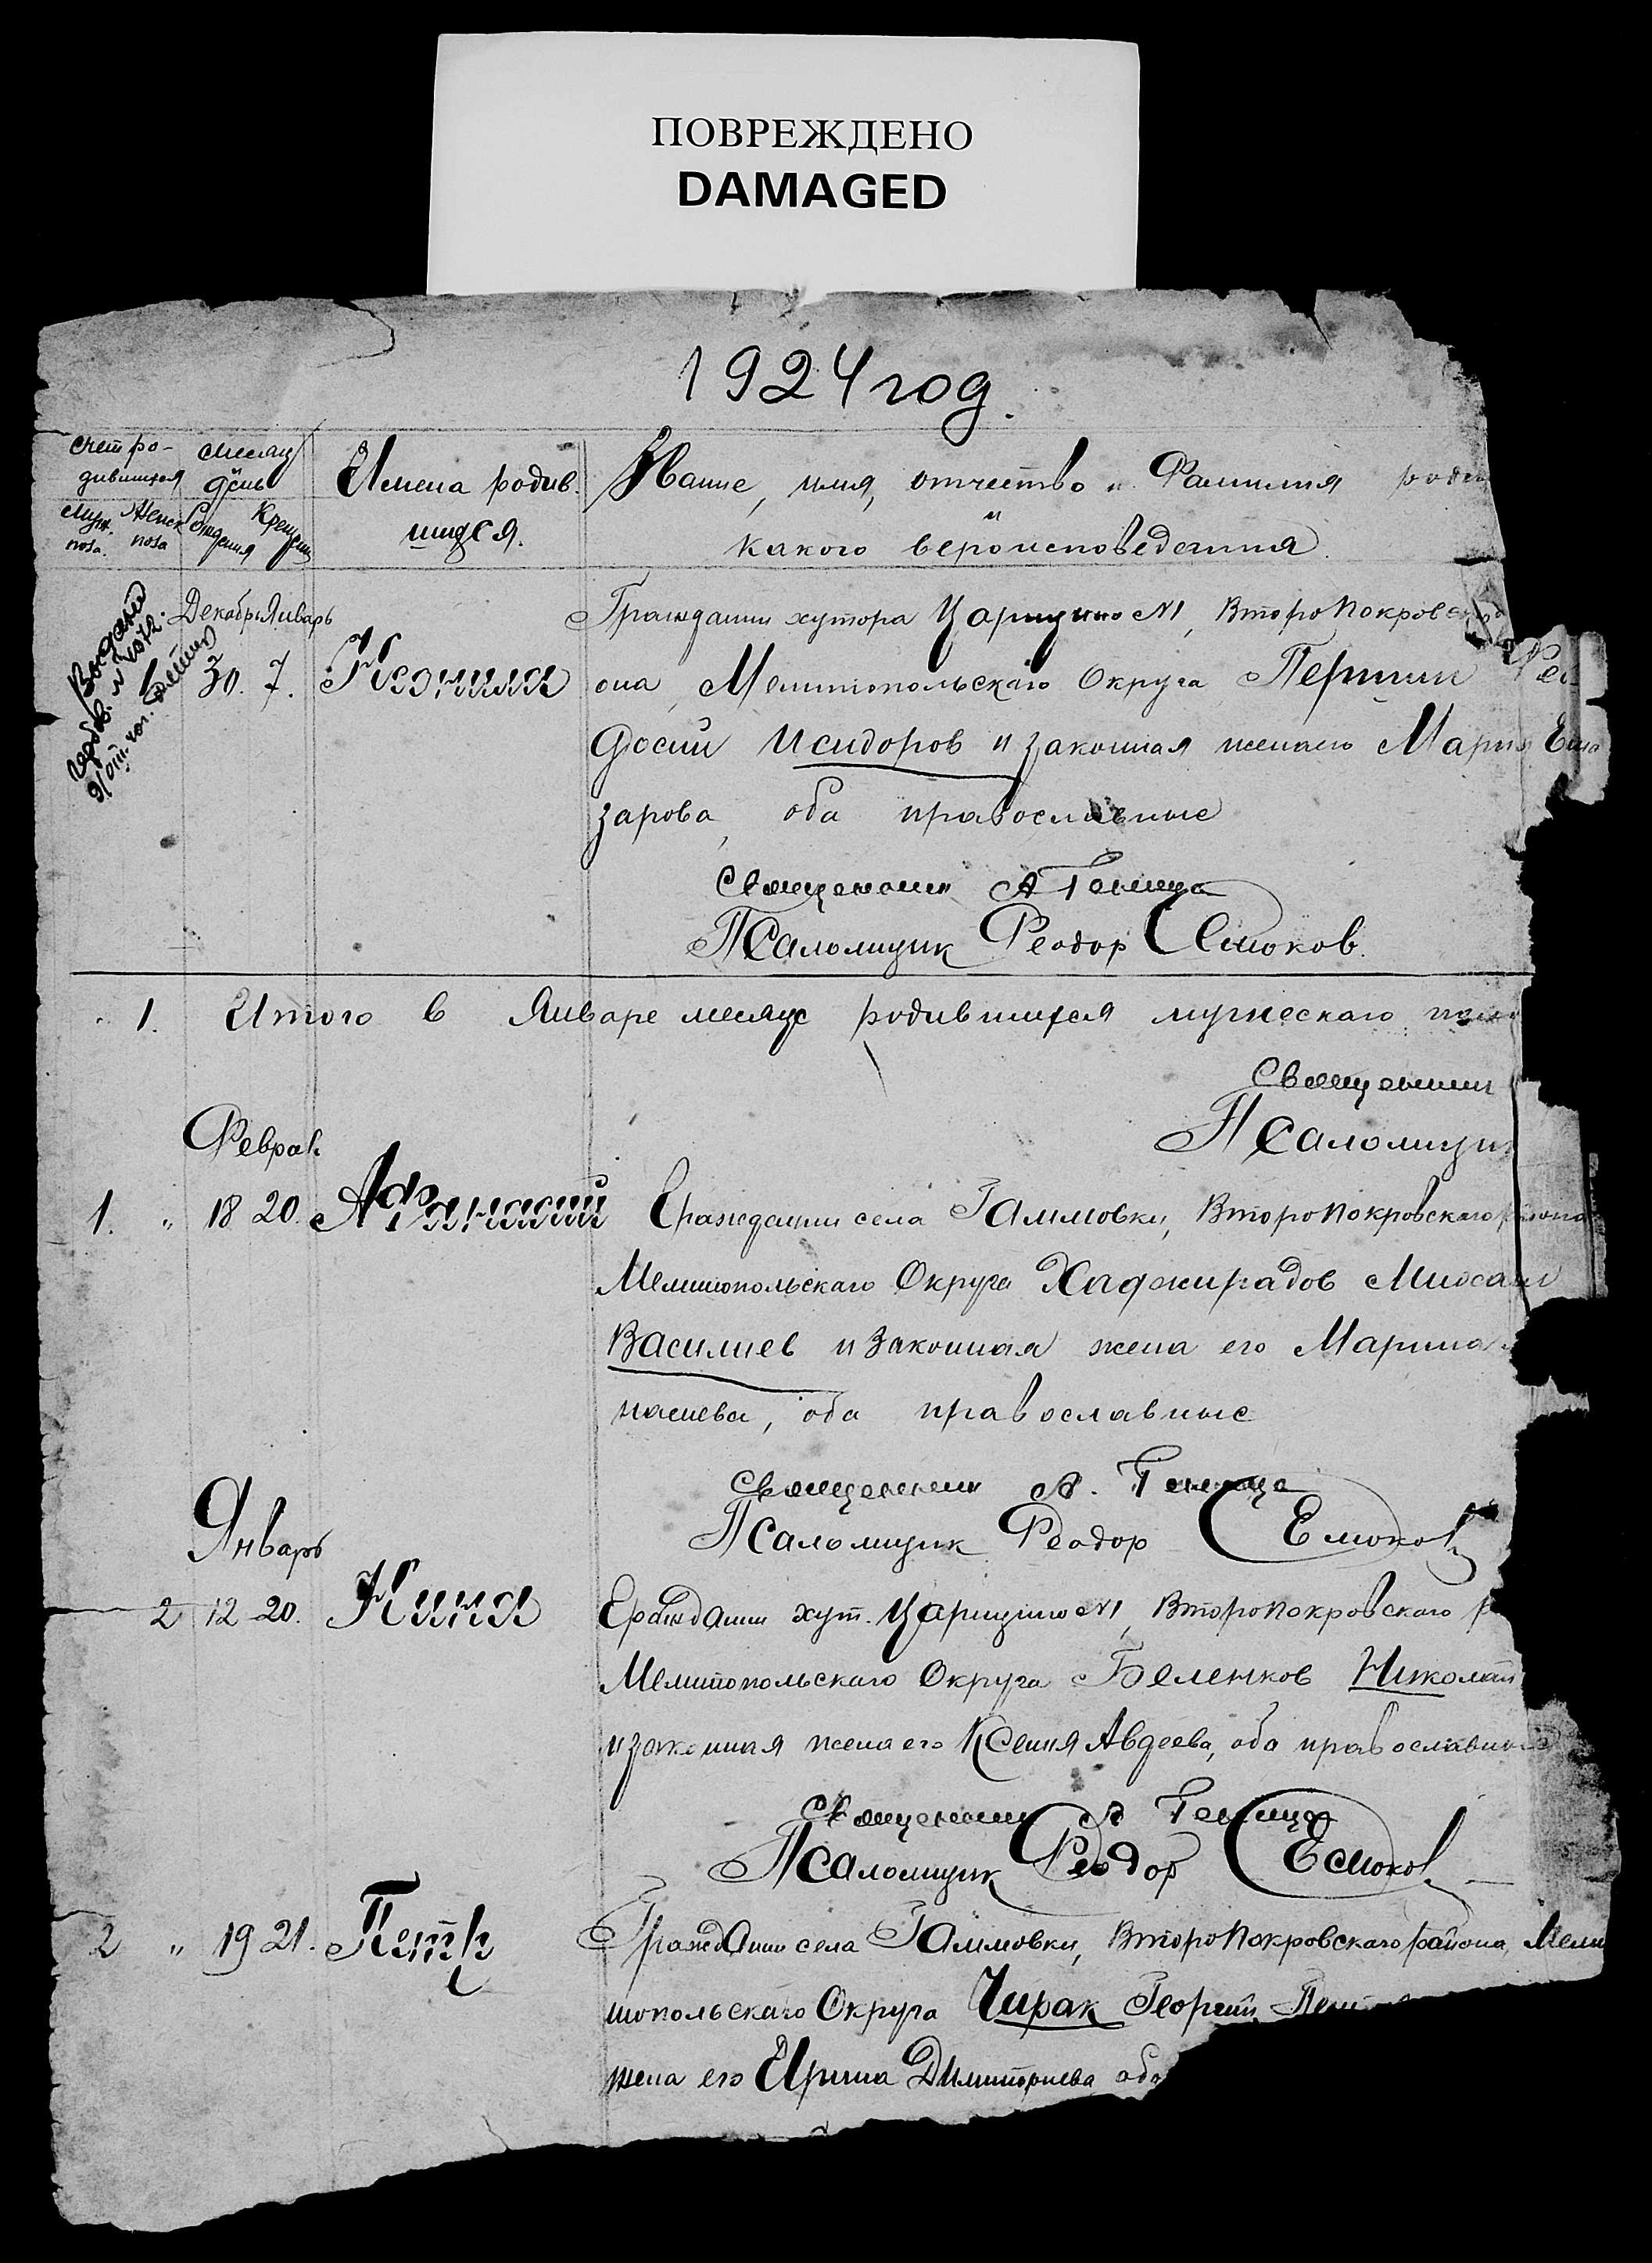 ПОВРЕЖДЕНО
DAMAGED
1924 год.
Счет ро-
дившихся
Месяц
день
Имена родив.
шихся.
Звание, имя, отчество и Фамилия
и
какого вероисповедания.
Муж.
пола.
Женск
пола
Рождения
Крещения
Декабрь Январь
30. 7.
Гражданин хутора Царицыно №1, Второпокровского
она, Мелитопольскаго Округа Першин Фео
досий Исидоров и законная жена его Мария Елиа
зарова, оба православные
Священник А Геница
Псаломщик Феодор
1. Итого в Январе месяце родившихся мужескаго пола
Священник
Псаломщик
Феврал
1. „ 18 20. Афанасий Гражданин села Гаммовки, Второпокровскаго района
Мелитопольскаго Округа Хаджирадов Михаил
Василиев и законная жена его Марина
насиева, оба православные
Священник А. Геница
Псаломщик Феодор
Январь
2 12 20. Нина Гражданин хут. Царицыно №1, Второпокровского р
Мелитопольскаго Округа Беленков Николай
и законная жена его Ксения Авдеева, оба православные
Священник А Геница
Псаломщик Феодор
2 „ 19 21. Петр Гражданин села Гаммовки, Второпокровскаго района, Мели
топольскаго Округа Чирак Георгий
жена его Ирина Димитриева оба